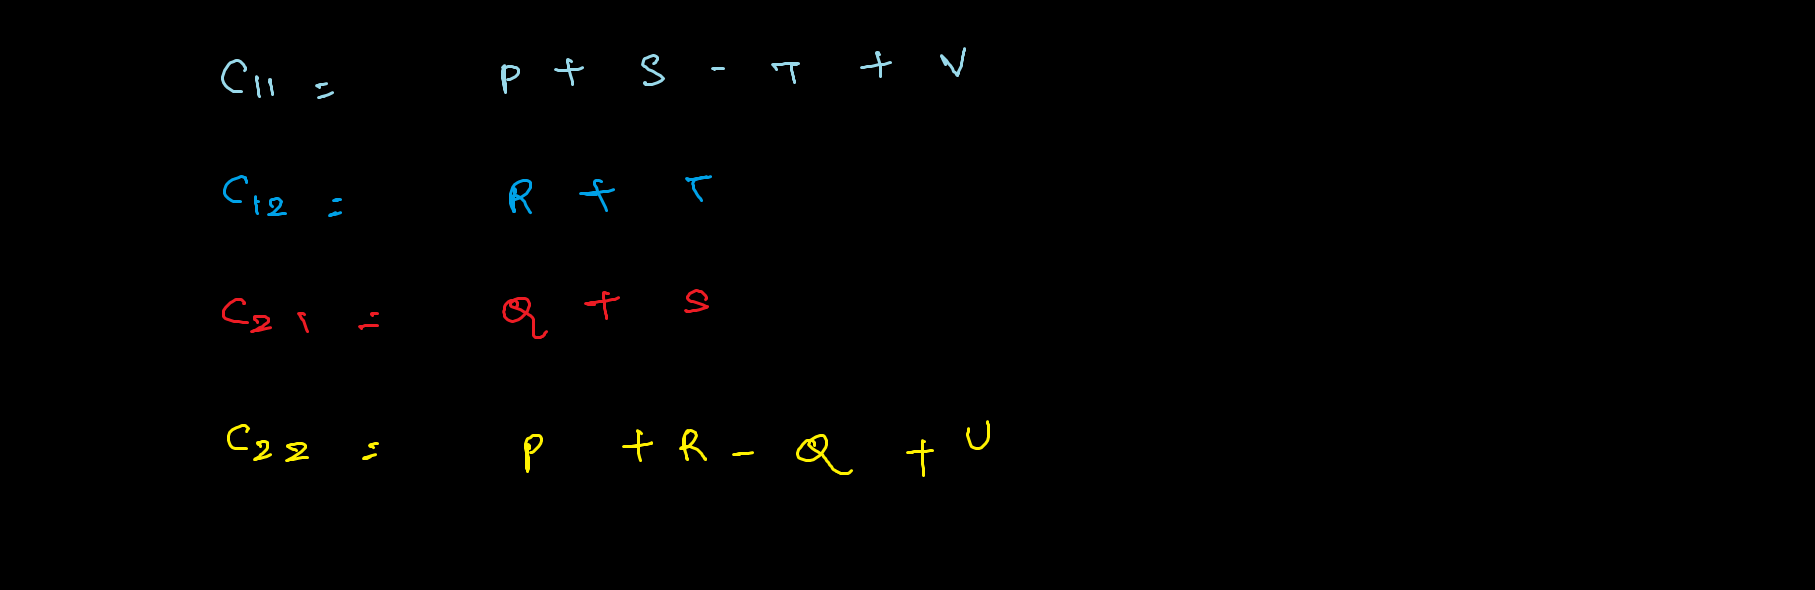 C11 = P + S - T + V
C12 = R + T
C21 = Q + S
C22 = P + R - Q + U